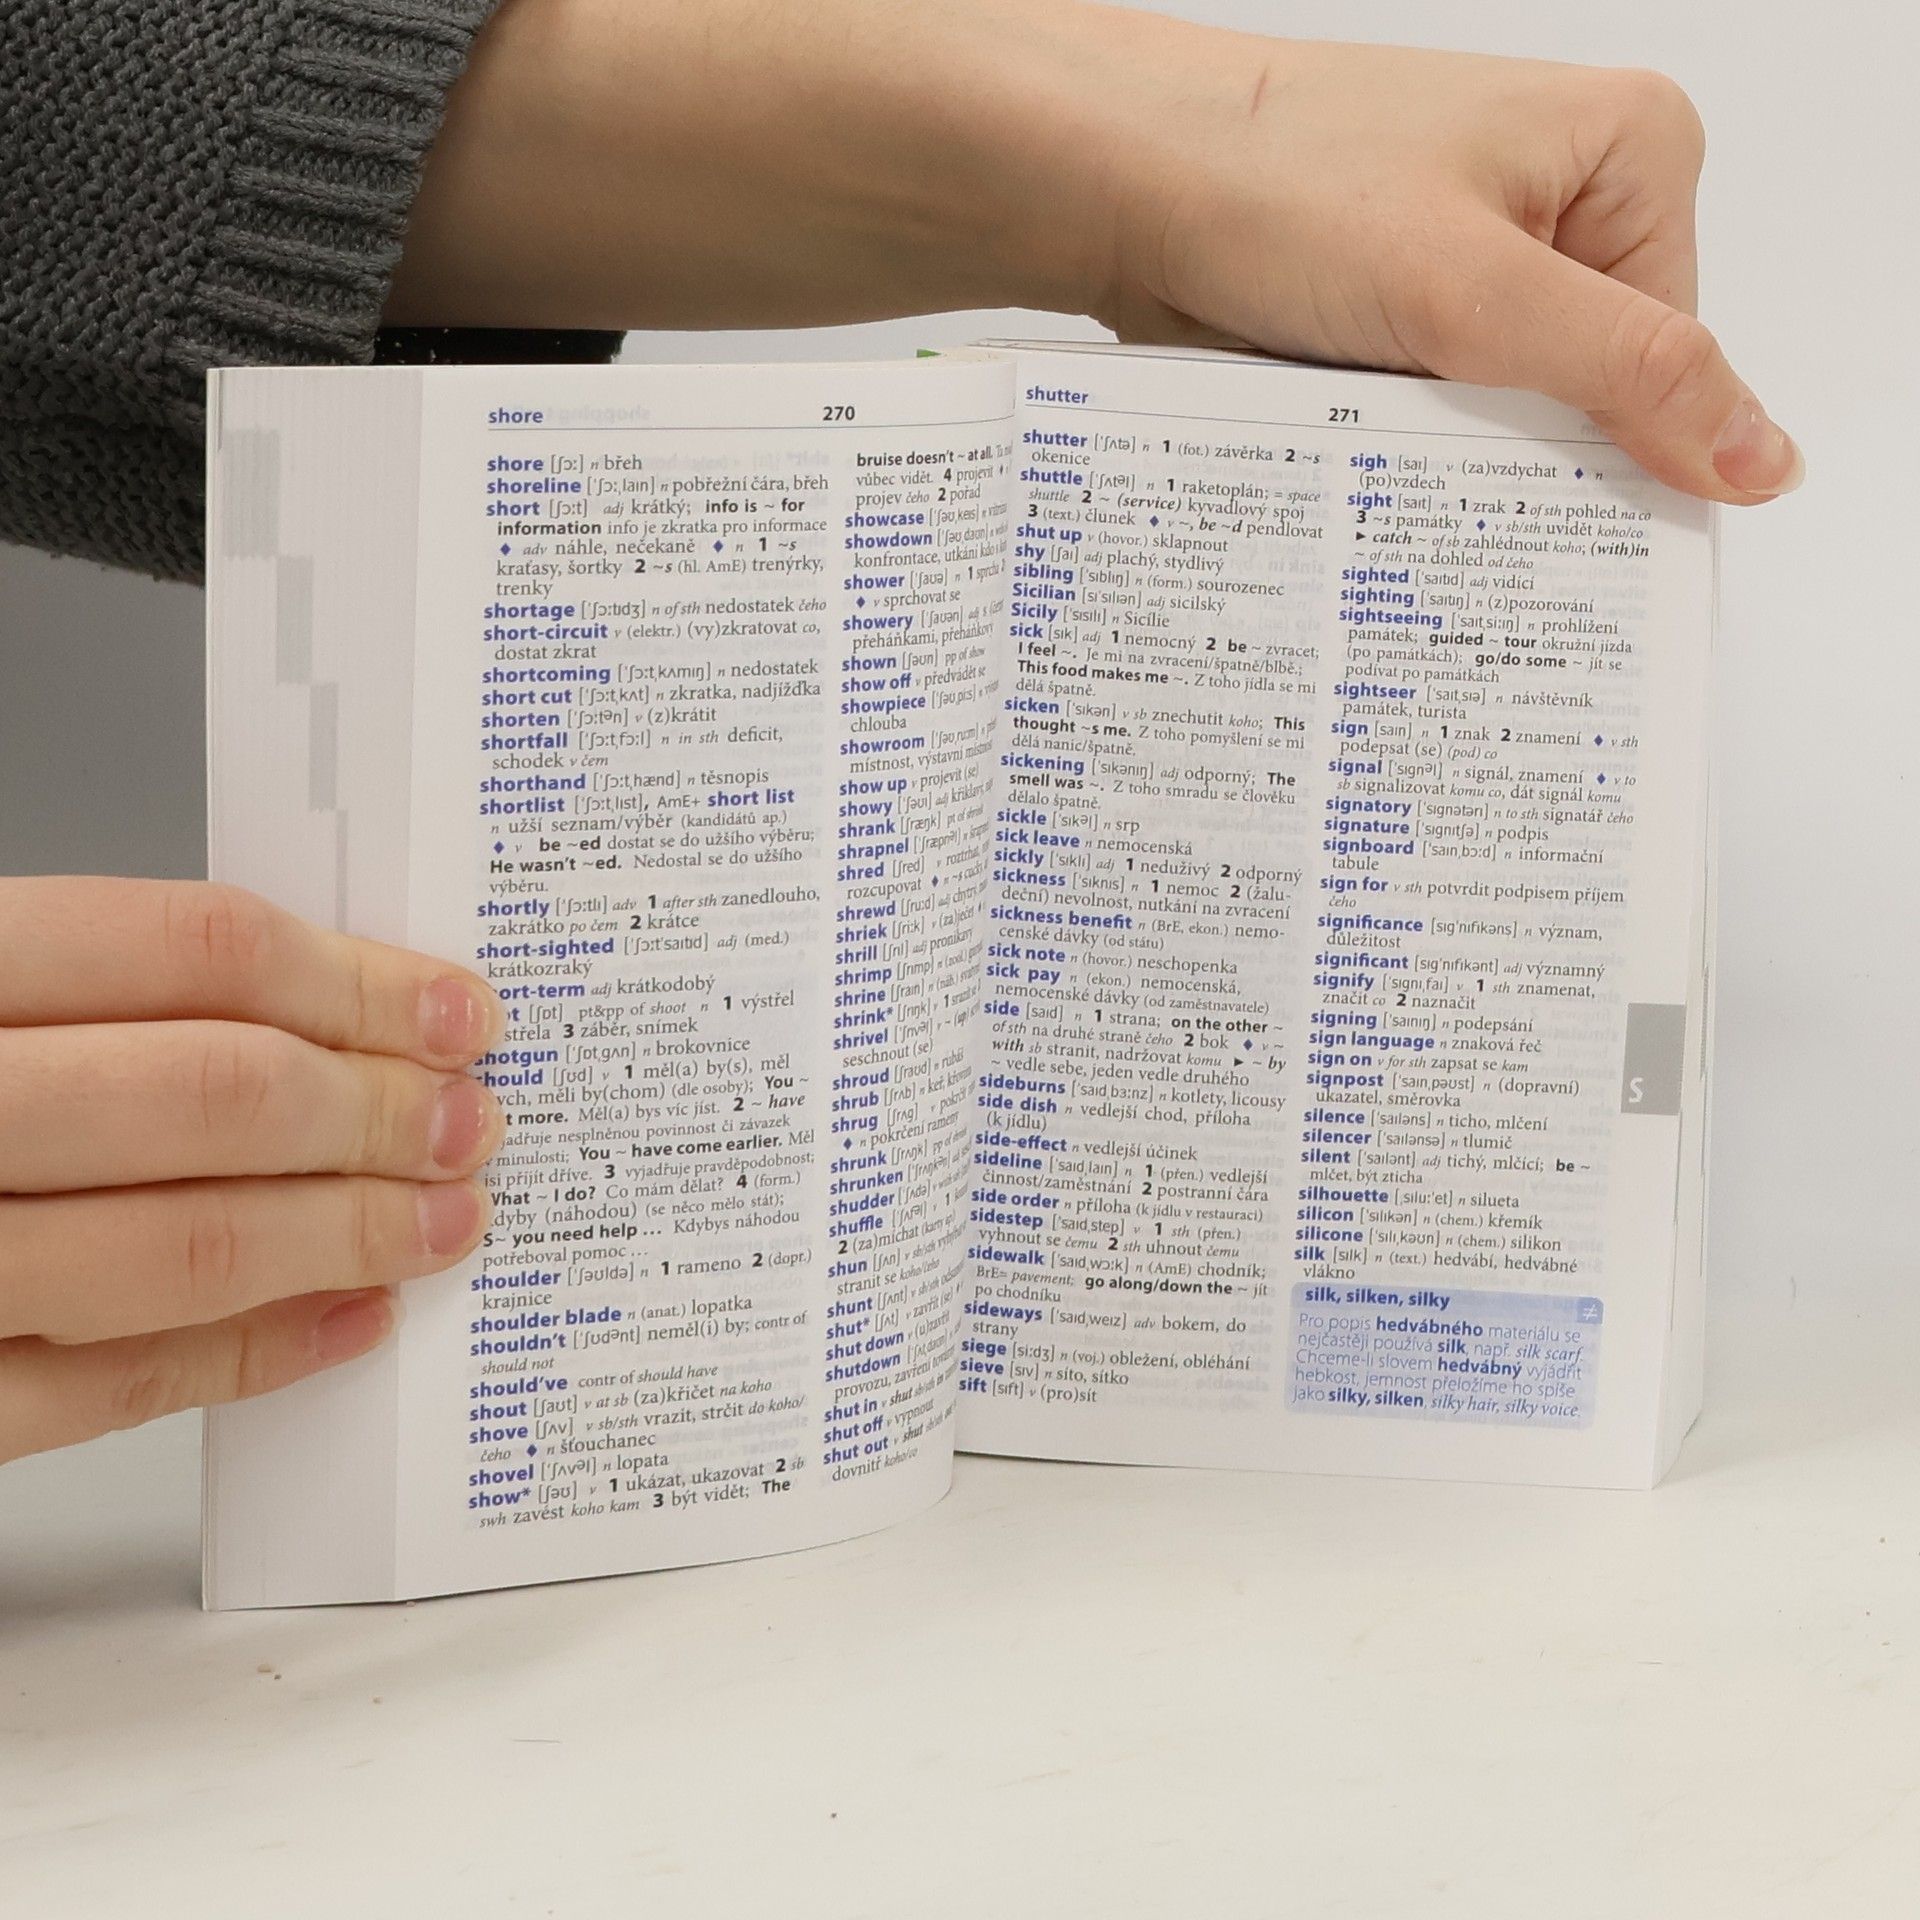 shore
270
shore [ʃɔː] n břeh
shoreline [ˈʃɔːˌlaɪn] n pobřežní čára, břeh
short [ʃɔːt] adj krátký; info is ~ for
information info je zkratka pro informace
♦ adv náhle, nečekaně ♦ n 1 ~s
kraťasy, šortky 2 ~s (hl. AmE) trenýrky,
trenky
shortage [ˈʃɔːtɪdʒ] n of sth nedostatek čeho
short-circuit v (elektr.) (vy)zkratovat co,
dostat zkrat
shortcoming [ˈʃɔːtˌkʌmɪŋ] n nedostatek
short cut [ˈʃɔːtˌkʌt] n zkratka, nadjížďka
shorten [ˈʃɔːtᵊn] v (z)krátit
shortfall [ˈʃɔːtˌfɔːl] n in sth deficit,
schodek v čem
shorthand [ˈʃɔːtˌhænd] n těsnopis
shortlist [ˈʃɔːtˌlɪst], AmE+ short list
n užší seznam/výběr (kandidátů ap.)
♦ v be ~ed dostat se do užšího výběru;
He wasn't ~ed. Nedostal se do užšího
výběru.
shortly [ˈʃɔːtlɪ] adv 1 after sth zanedlouho,
zakrátko po čem 2 krátce
short-sighted [ˈʃɔːtˈsaɪtɪd] adj (med.)
krátkozraký
ort-term adj krátkodobý
[ʃɒt] pt&pp of shoot n 1 výstřel
střela 3 záběr, snímek
shotgun [ˈʃɒtˌgʌn] n brokovnice
hould [ʃʊd] v 1 měl(a) by(s), měl
ych, měli by(chom) (dle osoby); You ~
t more. Měl(a) bys víc jíst. 2 ~ have
jadřuje nesplněnou povinnost či závazek
v minulosti; You ~ have come earlier. Měl
jsi přijít dříve. 3 vyjadřuje pravděpodobnost;
What ~ I do? Co mám dělat? 4 (form.)
dyby (náhodou) (se něco mělo stát);
S~ you need help ... Kdybys náhodou
potřeboval pomoc ...
shoulder [ˈʃəʊldə] n 1 rameno 2 (dopr.)
krajnice
shoulder blade n (anat.) lopatka
shouldn't [ˈʃʊdᵊnt] neměl(i) by; contr of
should not
should've contr of should have
shout [ʃaʊt] v at sb (za)křičet na koho
shove [ʃʌv] v sb/sth vrazit, strčit do koho/
čeho ♦ n šťouchanec
shovel [ˈʃʌvᵊl] n lopata
show* [ʃəʊ] v 1 ukázat, ukazovat 2 sb
swh zavést koho kam 3 být vidět; The
bruise doesn't ~ at all.
vůbec vidět. 4 projevit ♦
projev čeho 2 pořad
showcase [ˈʃəʊˌkeɪs] n
showdown [ˈʃəʊˌdaʊn] n
konfrontace, utkání
shower [ˈʃaʊə] n 1 sprcha 2
♦ v sprchovat se
showery [ˈʃaʊərɪ] adj
přeháňkami, přeháňkový
shown [ʃəʊn] pp of show
show off v předvádět se
showpiece [ˈʃəʊˌpiːs] n
chlouba
showroom [ˈʃəʊˌruːm] n
místnost, výstavní místnost
show up v projevit (se)
showy [ˈʃəʊɪ] adj křiklavý
shrank [ʃræŋk] pt of shrink
shrapnel [ˈʃræpnᵊl] n šrapnel
shred [ʃred] v roztrhat,
rozcupovat ♦ n ~s
shrewd [ʃruːd] adj chytrý
shriek [ʃriːk] v (za)ječet
shrill [ʃrɪl] adj pronikavý
shrimp [ʃrɪmp] n (zool.)
shrine [ʃraɪn] n (náb.)
shrink* [ʃrɪŋk] v 1
shrivel [ˈʃrɪvᵊl] v ~ (up)
seschnout (se)
shroud [ʃraʊd] n rubáš
shrub [ʃrʌb] n keř, křovina
shrug [ʃrʌg] v pokrčit
♦ n pokrčení rameny
shrunk [ʃrʌŋk] pp of shrink
shrunken [ˈʃrʌŋkən] adj
shudder [ˈʃʌdə] v
shuffle [ˈʃʌfᵊl] v 1
2 (za)míchat (karty ap.)
shun [ʃʌn] v sb/sth
stranit se koho/čeho
shunt [ʃʌnt] v sb/sth
shut* [ʃʌt] v zavřít (se)
shut down v (u)zavřít
shutdown [ˈʃʌtˌdaʊn] n
provozu, zavření
shut in v shut sb/sth in
shut off v vypnout
shut out v shut sb/sth out
dovnitř koho/co
shutter
271
shutter [ˈʃʌtə] n 1 (fot.) závěrka 2 ~s
okenice
shuttle [ˈʃʌtᵊl] n 1 raketoplán; = space
shuttle 2 ~ (service) kyvadlový spoj
3 (text.) člunek ♦ v ~, be ~d pendlovat
shut up v (hovor.) sklapnout
shy [ʃaɪ] adj plachý, stydlivý
sibling [ˈsɪblɪŋ] n (form.) sourozenec
Sicilian [sɪˈsɪlɪən] adj sicilský
Sicily [ˈsɪsɪlɪ] n Sicílie
sick [sɪk] adj 1 nemocný 2 be ~ zvracet;
I feel ~. Je mi na zvracení/špatně/blbě.;
This food makes me ~. Z toho jídla se mi
dělá špatně.
sicken [ˈsɪkən] v sb znechutit koho; This
thought ~s me. Z toho pomyšlení se mi
dělá nanic/špatně.
sickening [ˈsɪkənɪŋ] adj odporný; The
smell was ~. Z toho smradu se člověku
dělalo špatně.
sickle [ˈsɪkᵊl] n srp
sick leave n nemocenská
sickly [ˈsɪklɪ] adj 1 neduživý 2 odporný
sickness [ˈsɪknɪs] n 1 nemoc 2 (žalu-
deční) nevolnost, nutkání na zvracení
sickness benefit n (BrE, ekon.) nemo-
censké dávky (od státu)
sick note n (hovor.) neschopenka
sick pay n (ekon.) nemocenská,
nemocenské dávky (od zaměstnavatele)
side [saɪd] n 1 strana; on the other ~
of sth na druhé straně čeho 2 bok ♦ v ~
with sb stranit, nadržovat komu ► ~ by
~ vedle sebe, jeden vedle druhého
sideburns [ˈsaɪdˌbɜːnz] n kotlety, licousy
side dish n vedlejší chod, příloha
(k jídlu)
side-effect n vedlejší účinek
sideline [ˈsaɪdˌlaɪn] n 1 (přen.) vedlejší
činnost/zaměstnání 2 postranní čára
side order n příloha (k jídlu v restauraci)
sidestep [ˈsaɪdˌstep] v 1 sth (přen.)
vyhnout se čemu 2 sth uhnout čemu
sidewalk [ˈsaɪdˌwɔːk] n (AmE) chodník;
BrE= pavement; go along/down the ~ jít
po chodníku
sideways [ˈsaɪdˌweɪz] adv bokem, do
strany
siege [siːdʒ] n (voj.) obležení, obléhání
sieve [sɪv] n síto, sítko
sift [sɪft] v (pro)sít
sigh [saɪ] v (za)vzdychat ♦ n
(po)vzdech
sight [saɪt] n 1 zrak 2 of sth pohled na co
3 ~s památky ♦ v sb/sth uvidět koho/co
► catch ~ of sb zahlédnout koho; (with)in
~ of sth na dohled od čeho
sighted [ˈsaɪtɪd] adj vidící
sighting [ˈsaɪtɪŋ] n (z)pozorování
sightseeing [ˈsaɪtˌsiːɪŋ] n prohlížení
památek; guided ~ tour okružní jízda
(po památkách); go/do some ~ jít se
podívat po památkách
sightseer [ˈsaɪtˌsɪə] n návštěvník
památek, turista
sign [saɪn] n 1 znak 2 znamení ♦ v sth
podepsat (se) (pod) co
signal [ˈsɪgnᵊl] n signál, znamení ♦ v to
sb signalizovat komu co, dát signál komu
signatory [ˈsɪgnətərɪ] n to sth signatář čeho
signature [ˈsɪgnɪtʃə] n podpis
signboard [ˈsaɪnˌbɔːd] n informační
tabule
sign for v sth potvrdit podpisem příjem
čeho
significance [sɪgˈnɪfɪkəns] n význam,
důležitost
significant [sɪgˈnɪfɪkənt] adj významný
signify [ˈsɪgnɪˌfaɪ] v 1 sth znamenat,
značit co 2 naznačit
signing [ˈsaɪnɪŋ] n podepsání
sign language n znaková řeč
sign on v for sth zapsat se kam
signpost [ˈsaɪnˌpəʊst] n (dopravní)
ukazatel, směrovka
silence [ˈsaɪləns] n ticho, mlčení
silencer [ˈsaɪlənsə] n tlumič
silent [ˈsaɪlənt] adj tichý, mlčící; be ~
mlčet, být zticha
silhouette [ˌsɪluːˈet] n silueta
silicon [ˈsɪlɪkən] n (chem.) křemík
silicone [ˈsɪlɪˌkəʊn] n (chem.) silikon
silk [sɪlk] n (text.) hedvábí, hedvábné
vlákno
silk, silken, silky ≠
Pro popis hedvábného materiálu se
nejčastěji používá silk, např. silk scarf.
Chceme-li slovem hedvábný vyjádřit
hebkost, jemnost přeložíme ho spíše
jako silky, silken, silky hair, silky voice.
S